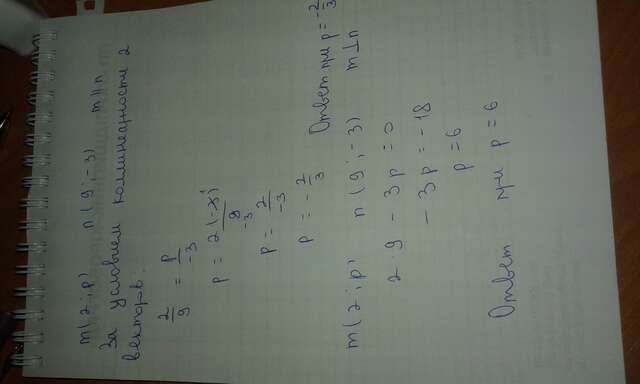 m(2;p) n(9;-3) m||n
За условием коллинеарности 2
векторов.
2/9 = p/-3
p = 2(-3)/9 -3
p = 2/-3
p = -2/3 Ответ при p = -2/3
m(2;p) n(9;-3) m⊥n
2·9 - 3p = 0
-3p = -18
p = 6
Ответ при p = 6